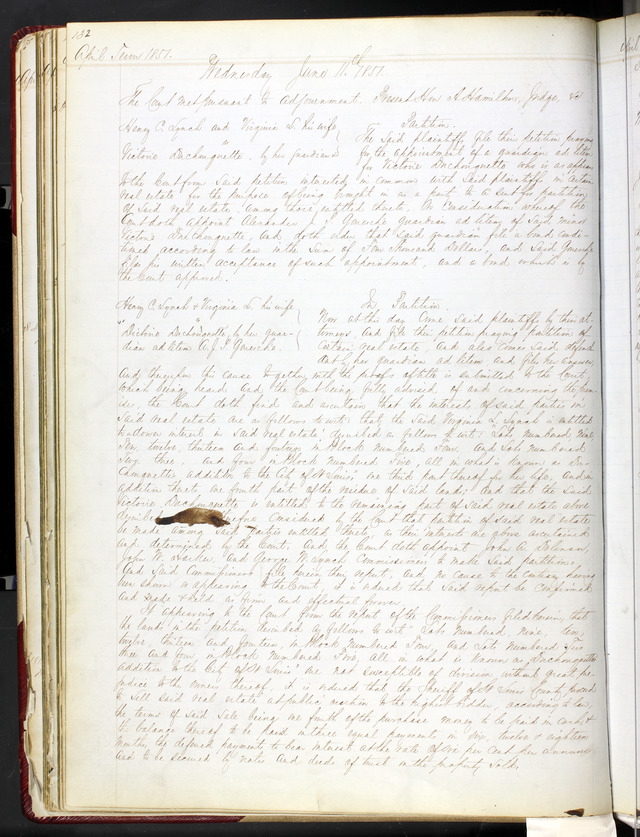 132
April Term 1851.
Wednesday June 11th 1851
The Court met pursuant to adjournment. Present Hon A Hamilton, Judge, &c
Henry C. Lynch and Virginia L. his wife
Victorie Duchouquette, by her guardian
Partition.
The Said plaintiffs file their petition praying
for the appointment of a guardian ad litem
for Victorie Duchouquette who is as appears
to the Court from Said petition interested in common with Said plaintiffs in certain
real estate for the purpose of being brought in as a party to a Suit for partition
of Said real estate among those entitled thereto, On Consideration whereof the
Court doth appoint Alexander J. P. Guesche guardian ad litem of Said minor
Victorie Duchouquette, and doth order that Said guardian file a bond
according to law in the Sum of Two thousand dollars, and Said Guesche
files his written acceptance of Such appointment, and a bond which is by
the Court approved.
Henry C. Lynch & Virginia L. his wife
Victorie Duchouquette, by her guar-
dian ad litem A. J. P. Guesche.
In Partition.
Now at this day Come Said plaintiffs by their at-
torneys, and file their petition praying partition of
certain real estate, and also comes Said defend
ant by her guardian ad litem and files her answer,
And thereupon this cause together with the proofs of title is submitted to the Court,
which being heard and the Court being fully advised, of and concerning the prem-
ises, the Court doth find and ascertain that the interests of Said parties in
Said real estate are as follows to wit: that the Said Virginia L. Lynch is entitled
to dower interest in Said real estate, described as follows to wit: Lots Numbered Nine
Ten, twelve, thirteen and fourteen in Block Numbered Four, and Lots Numbered
three, and four in Block Numbered Five, all in what is known as Du-
chouquette's addition to the City of St Louis, one third part thereof for her life, and in
addition thereto one fourth part of the residue of Said land; And that the Said
Victorie Duchouquette is entitled to the remaining part of Said real estate above
described Considered by the Court that partition of Said real estate
be made among Said parties entitled thereto, as their interests are above ascertained
and determined by the Court. And, the Court doth appoint John A.
John and George Commissioners to make Said partition.
And Said Commissioners file herein their report, and no cause to the contrary having
been shown or appearing to the Court it is ordered that Said report be confirmed
and made firm and effectual forever.
It appearing to the Court from the report of the Commissioners filed herein, that
the lands in the petition described as follows to wit: Lots Numbered, nine, ten,
twelve, thirteen and fourteen, in Block Numbered Four, and Lots Numbered
three and four in Block Numbered Five, all in what is known as Duchouquette's
addition to the City of St Louis are not susceptible of division without great pre-
judice to the owners thereof, it is ordered that the Sheriff of St Louis County proceed
to Sell said real estate at public auction to the highest bidder, according to law,
the terms of Said Sale being one fourth of the purchase money to be paid in cash, &
the balance thereof to be paid in three equal payments in six, twelve & eighteen
months, the deferred payments to bear interest at the rate of six per Cent per annum
and to be secured by notes and deeds of trust on the property Sold.